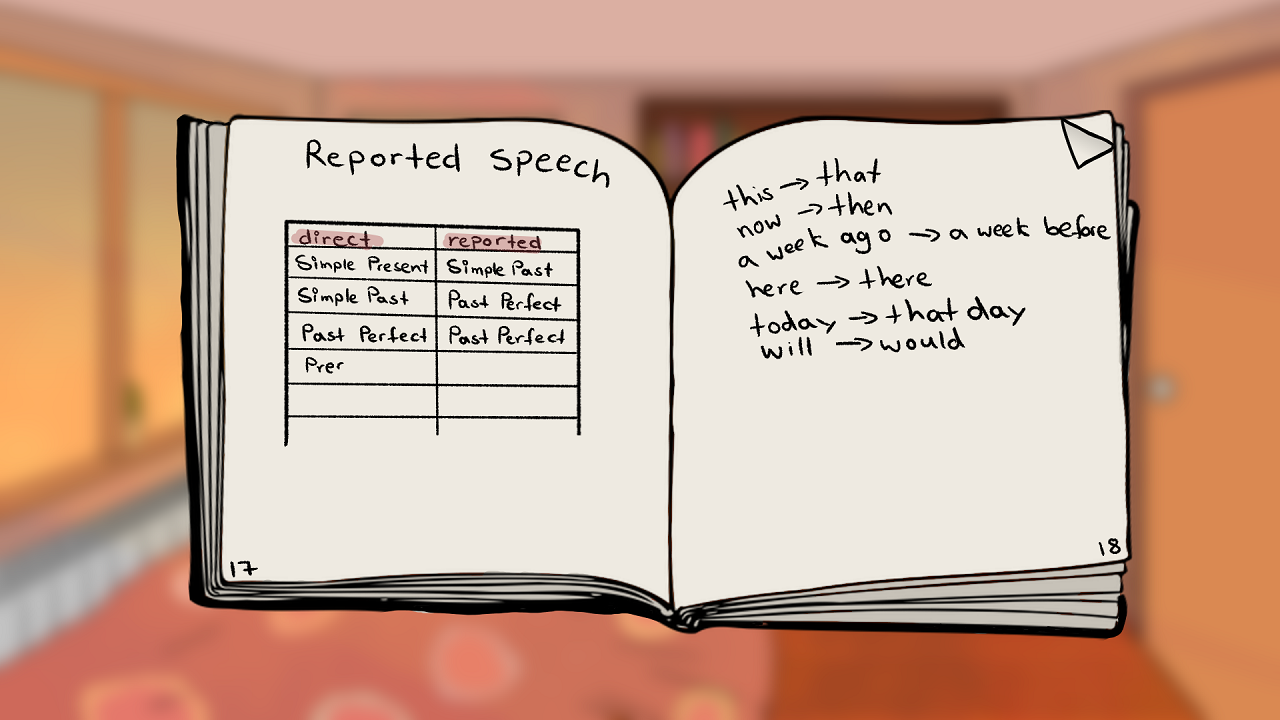 Reported speech
direct reported
Simple Present Simple Past
Simple Past Past Perfect
Past Perfect Past Perfect
Prer
17
this → that
now → then
a week ago → a week before
here → there
today → that day
will → would
18